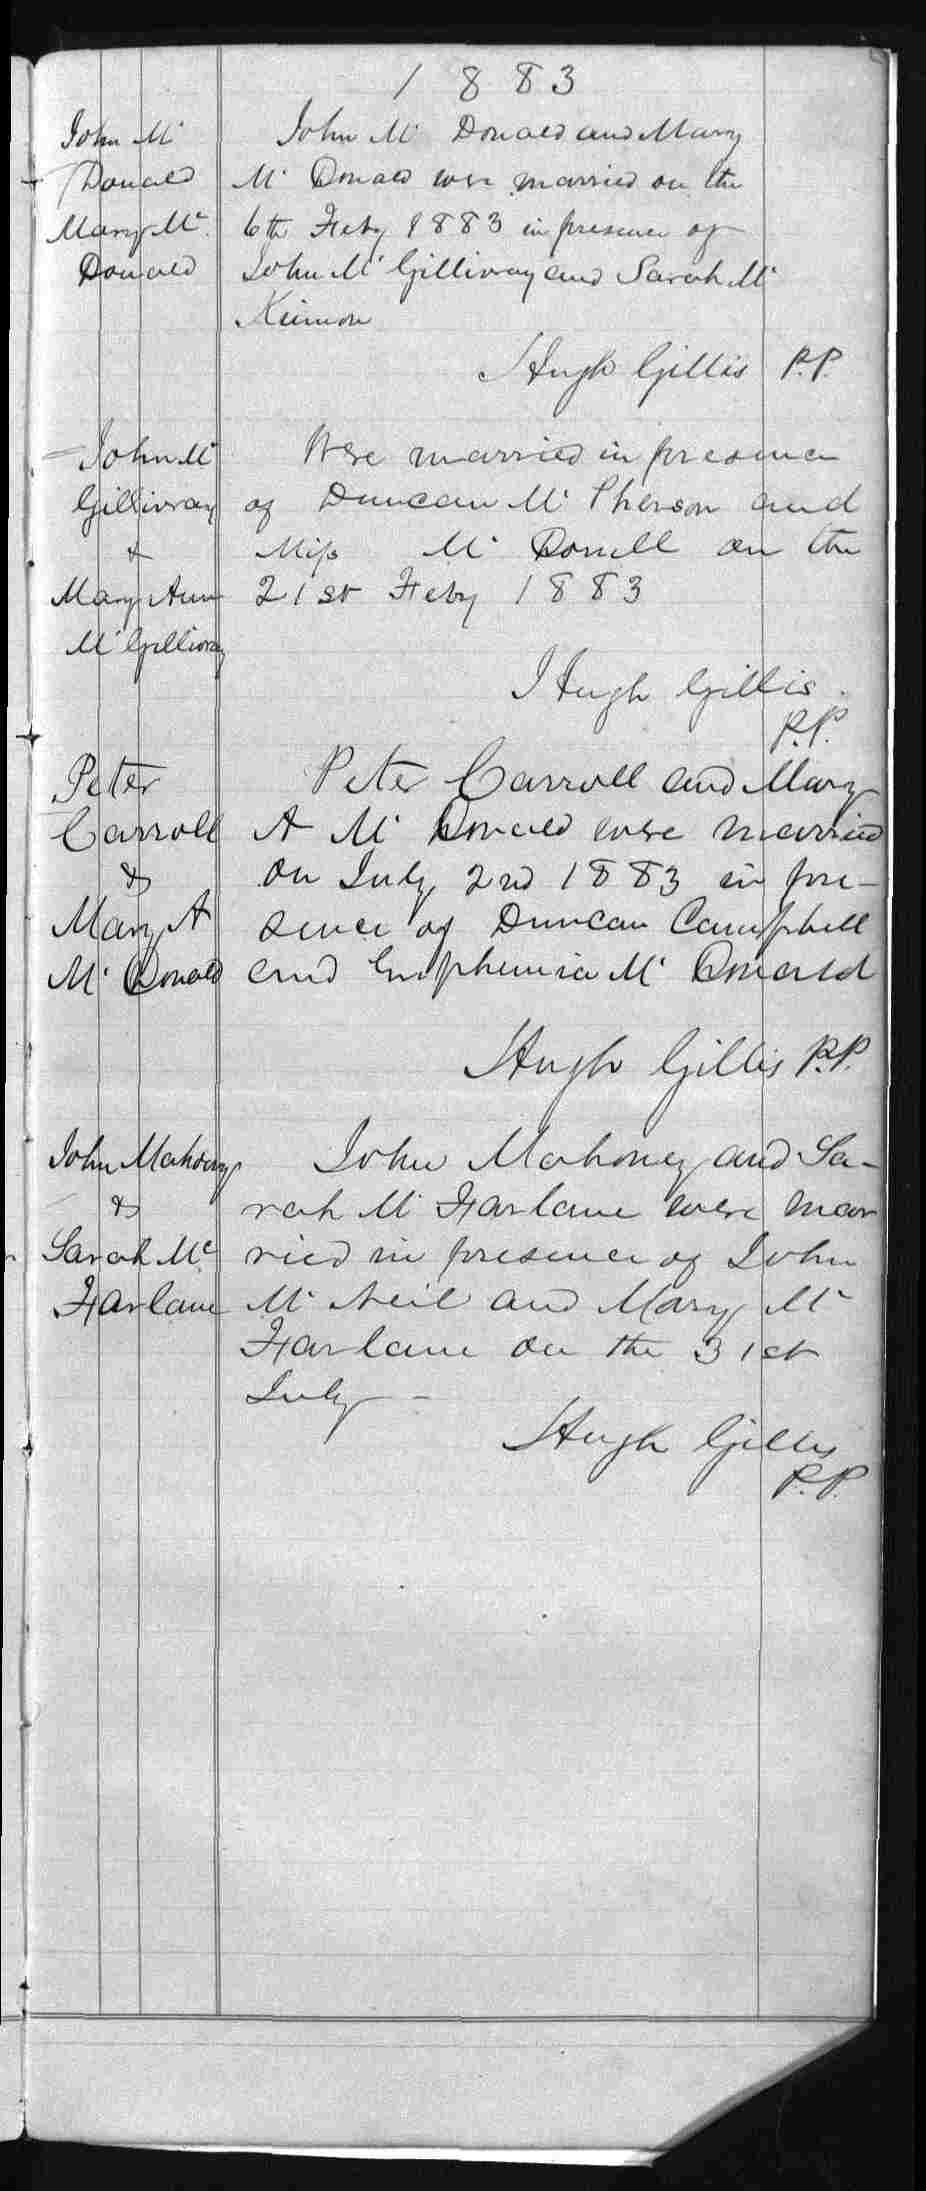 1883
John Mc
Donald
Mary Mc
Donald
John Mc Donald and Mary
Mc Donald were married on the
6th Feby 1883 in presence of
John Mc Gillivray and Sarah Mc
Kinnon
Hugh Gillis P.P.
John Mc
Gillivray
&
Mary Ann
Mc Gillivray
Were married in presence
of Duncan Mc Pherson and
Miss Mc Donell on the
21st Feby 1883
Hugh Gillis
P.P.
Peter
Carroll
&
Mary A
Mc Donald
Peter Carroll and Mary
A Mc Donald were married
on July 2nd 1883 in pre-
sence of Duncan Campbell
and Emphemia Mc Donald
Hugh Gillis P.P.
John Mahoney
&
Sarah Mc
Farlane
John Mahoney and Sa-
rah Mc Farlane were mar
ried in presence of John
Mc Neil and Mary Mc
Farlane on the 31st
July -
Hugh Gillis
P.P.